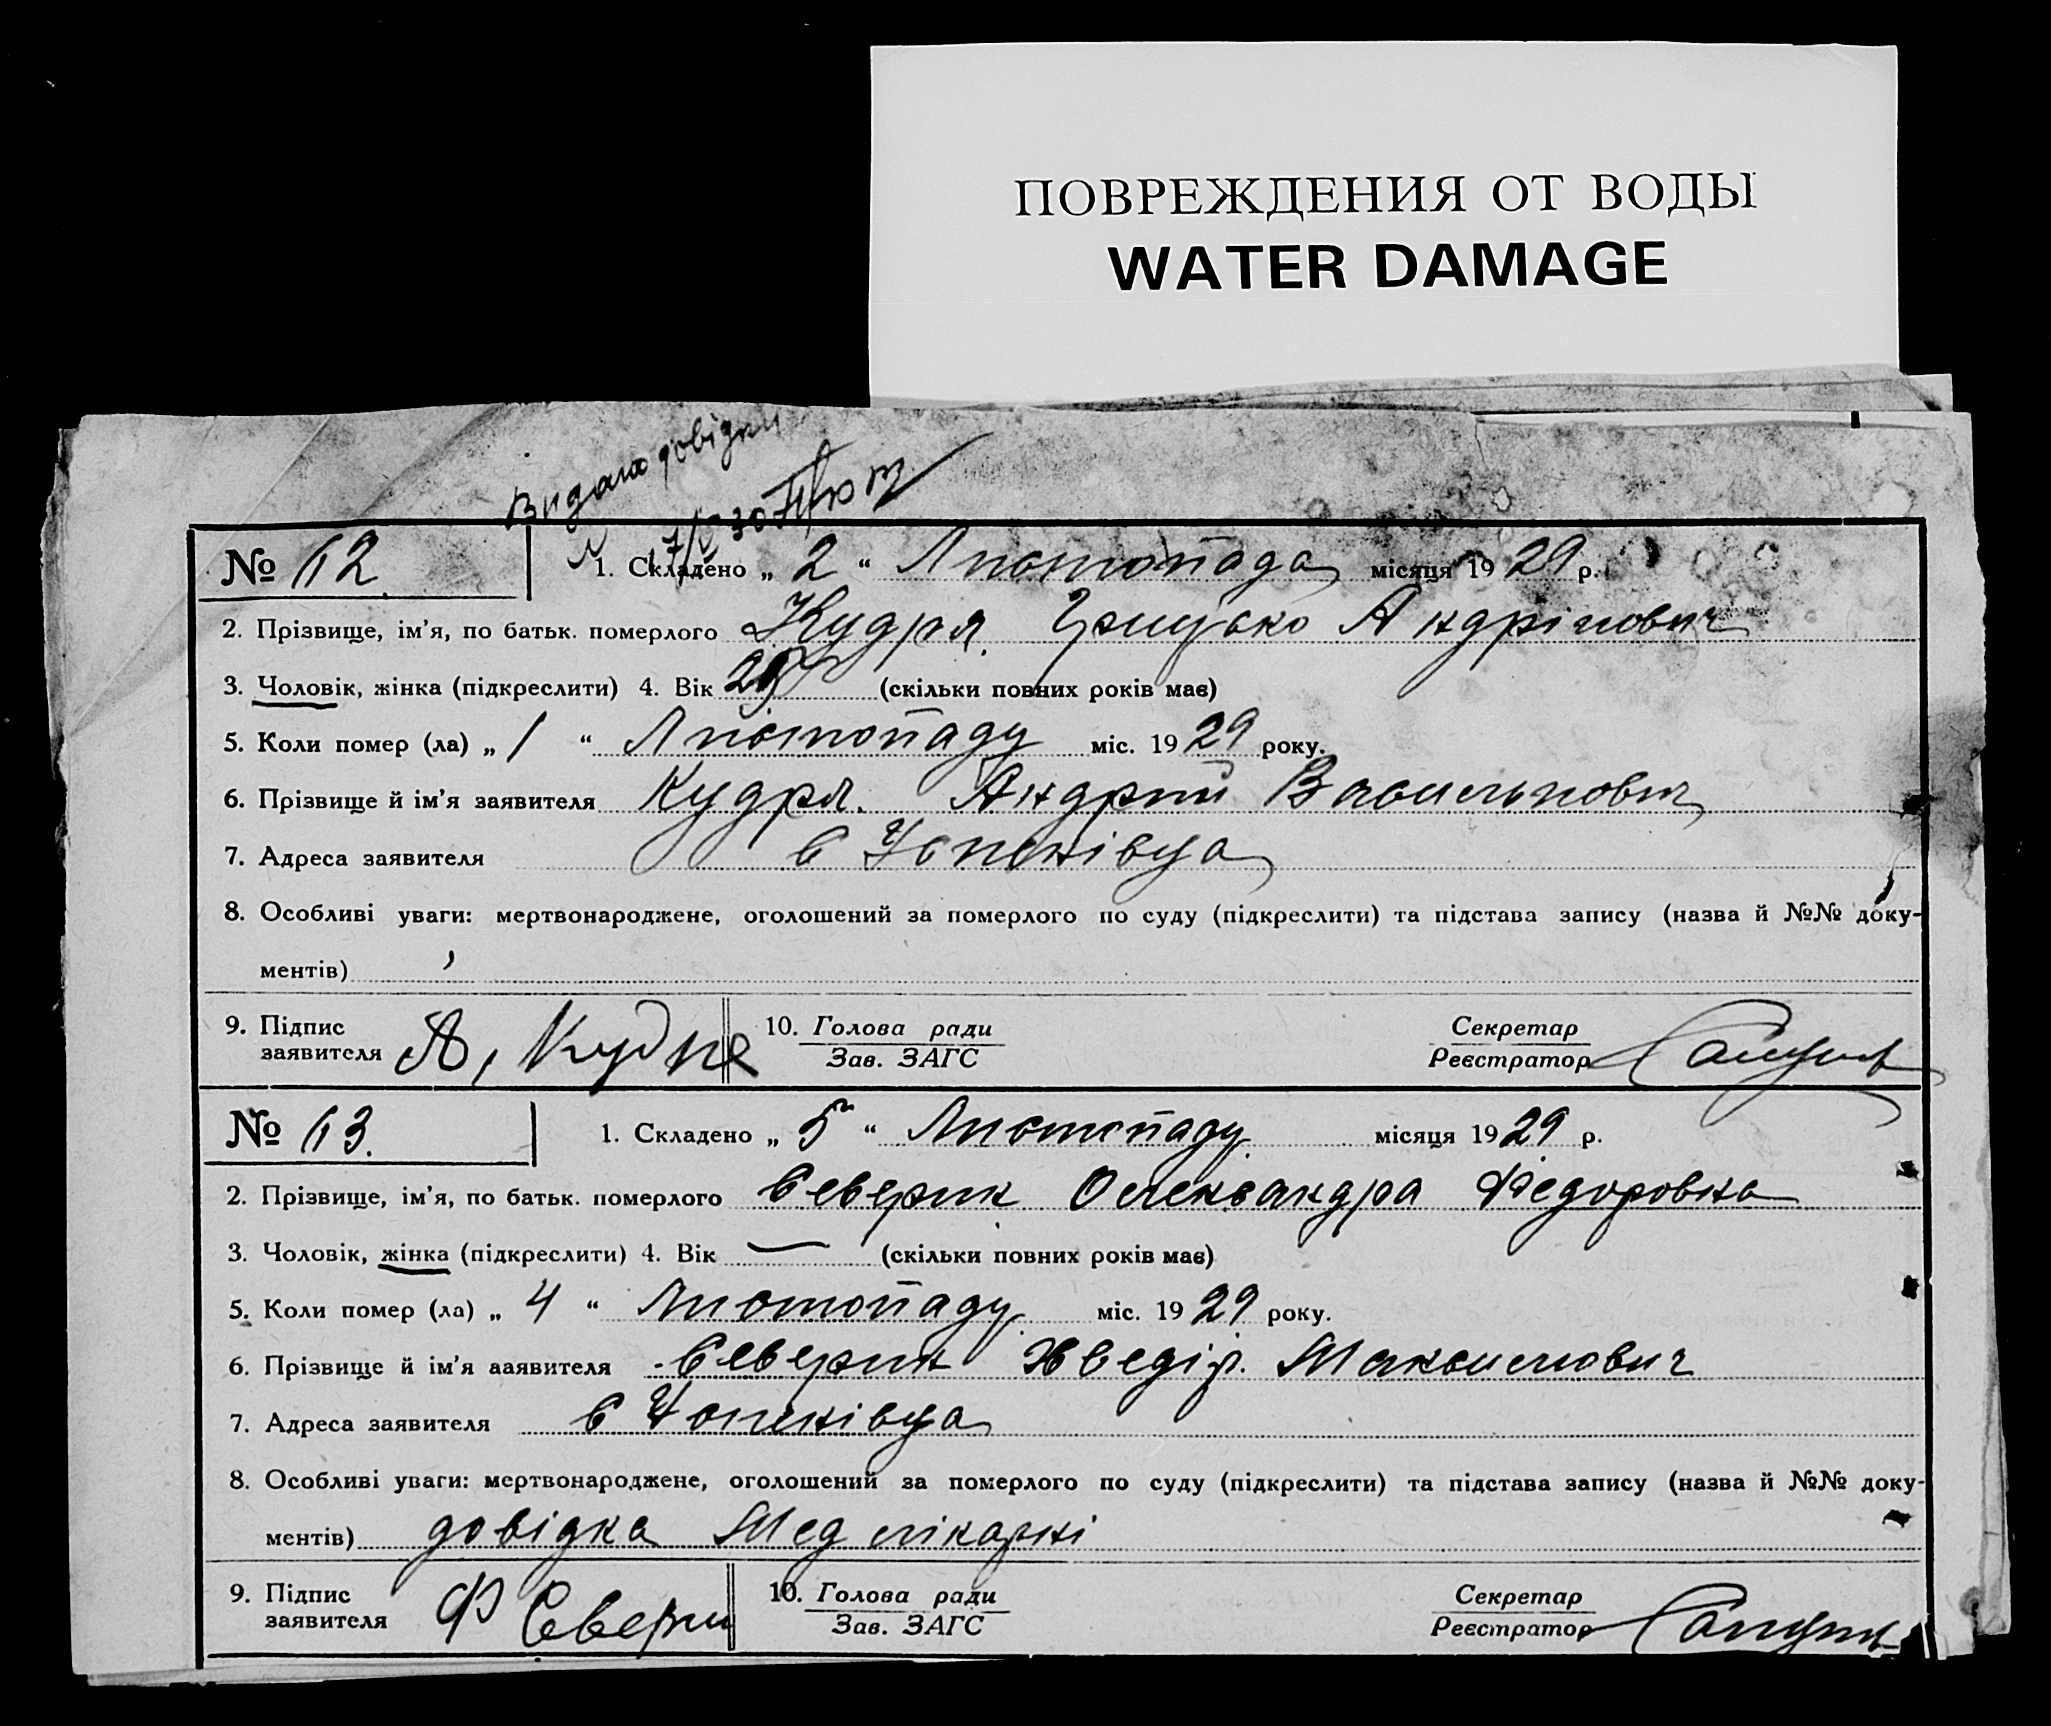 ПОВРЕЖДЕНИЯ ОТ ВОДЫ
WATER DAMAGE
Видана довідка
№ 12. 1. Складено „ 2 “ Листопада місяця 1929 р.
2. Прізвище, ім'я, по батьк. померлого Кудря Грицько Андрійович
3. Чоловік, жінка (підкреслити) 4. Вік (скільки повних років має)
5. Коли помер (ла) „ 1 “ Листопаду міс. 1929 року.
6. Прізвище й ім'я заявителя Кудря Андрій Васильович
7. Адреса заявителя с
8. Особливі уваги: мертвонароджене, оголошений за померлого по суду (підкреслити) та підстава запису (назва й №№ доку-
ментів)
9. Підпис заявителя А. Кудря 10. Голова ради Секретар
Зав. ЗАГС Реєстратор
№ 13. 1. Складено „ 5 “ Листопаду місяця 1929 р.
2. Прізвище, ім'я, по батьк. померлого Северин Олександра Федоровна
3. Чоловік, жінка (підкреслити) 4. Вік — (скільки повних років має)
5. Коли помер (ла) „ 4 “ Листопаду міс. 1929 року.
6. Прізвище й ім'я ааявителя Северин Хведір Максимович
7. Адреса заявителя с
8. Особливі уваги: мертвонароджене, оголошений за померлого по суду (підкреслити) та підстава запису (назва й №№ доку-
ментів) довідка Мед лікарні
9. Підпис заявителя Ф Северин 10. Голова ради Секретар
Зав. ЗАГС Реєстратор